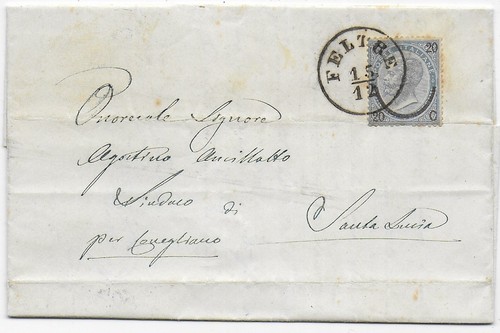 FELTRE
15
12
20
20 C
Onorevole Signore
Agostino Ancillotto
Sindaco di
Santa Lucia
per Conegliano